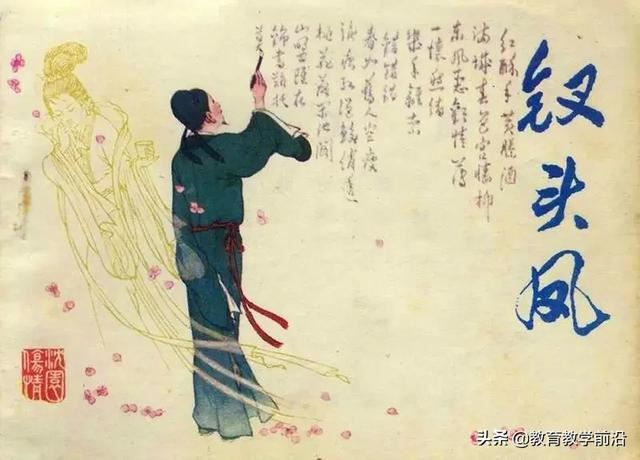 钗头凤
红酥手黄縢酒
满城春色宫墙柳
东风恶欢情薄
一懷愁绪
幾年離索
錯錯錯
春如舊人空瘦
泪痕红浥鲛绡透
桃花落闲池阁
山盟雖在
錦書難托
莫
沈園
傷情
头条 @教育教学前沿